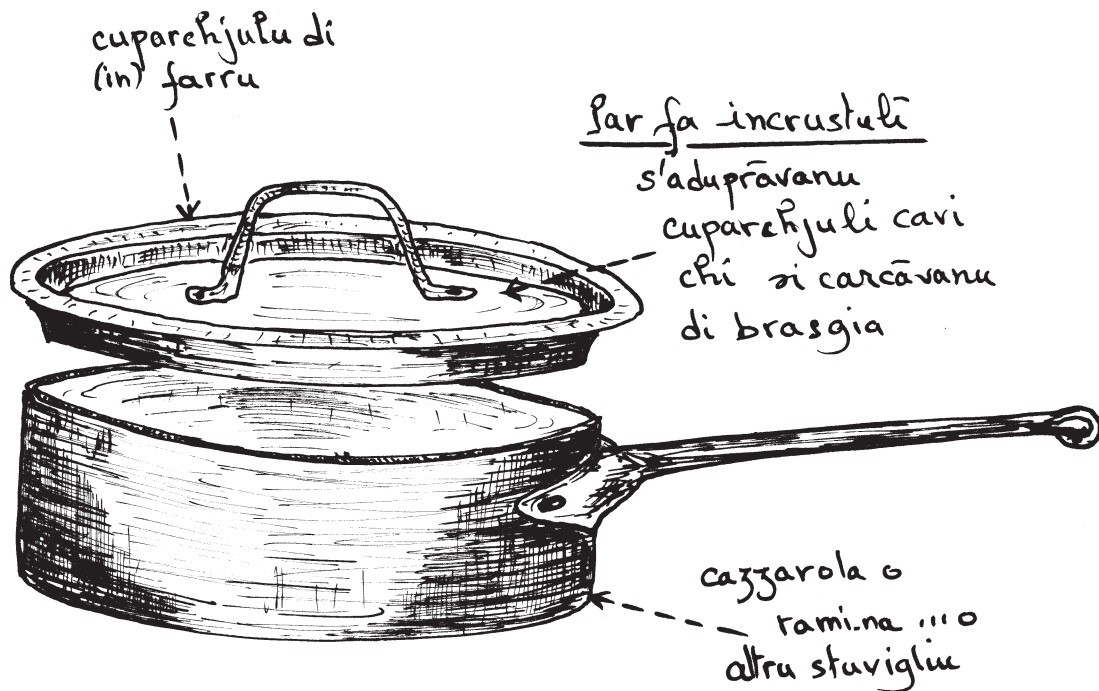 cuparchjulu di
(in) farru
Par fa incrustulī
s'aduprāvanu
cuparchjuli cavi
chi si carcāvanu
di brasgia
cazzarola o
ramina ... o
altru stuvigliu